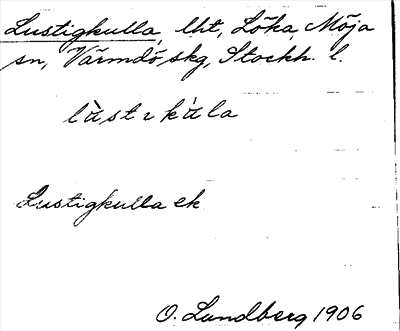 Lustigkulla, lht, Löka, Möja
sn, Värmdö skg, Stockh. l.
lùstɩkùla
Lustigkulla ek
O. Lundberg 1906